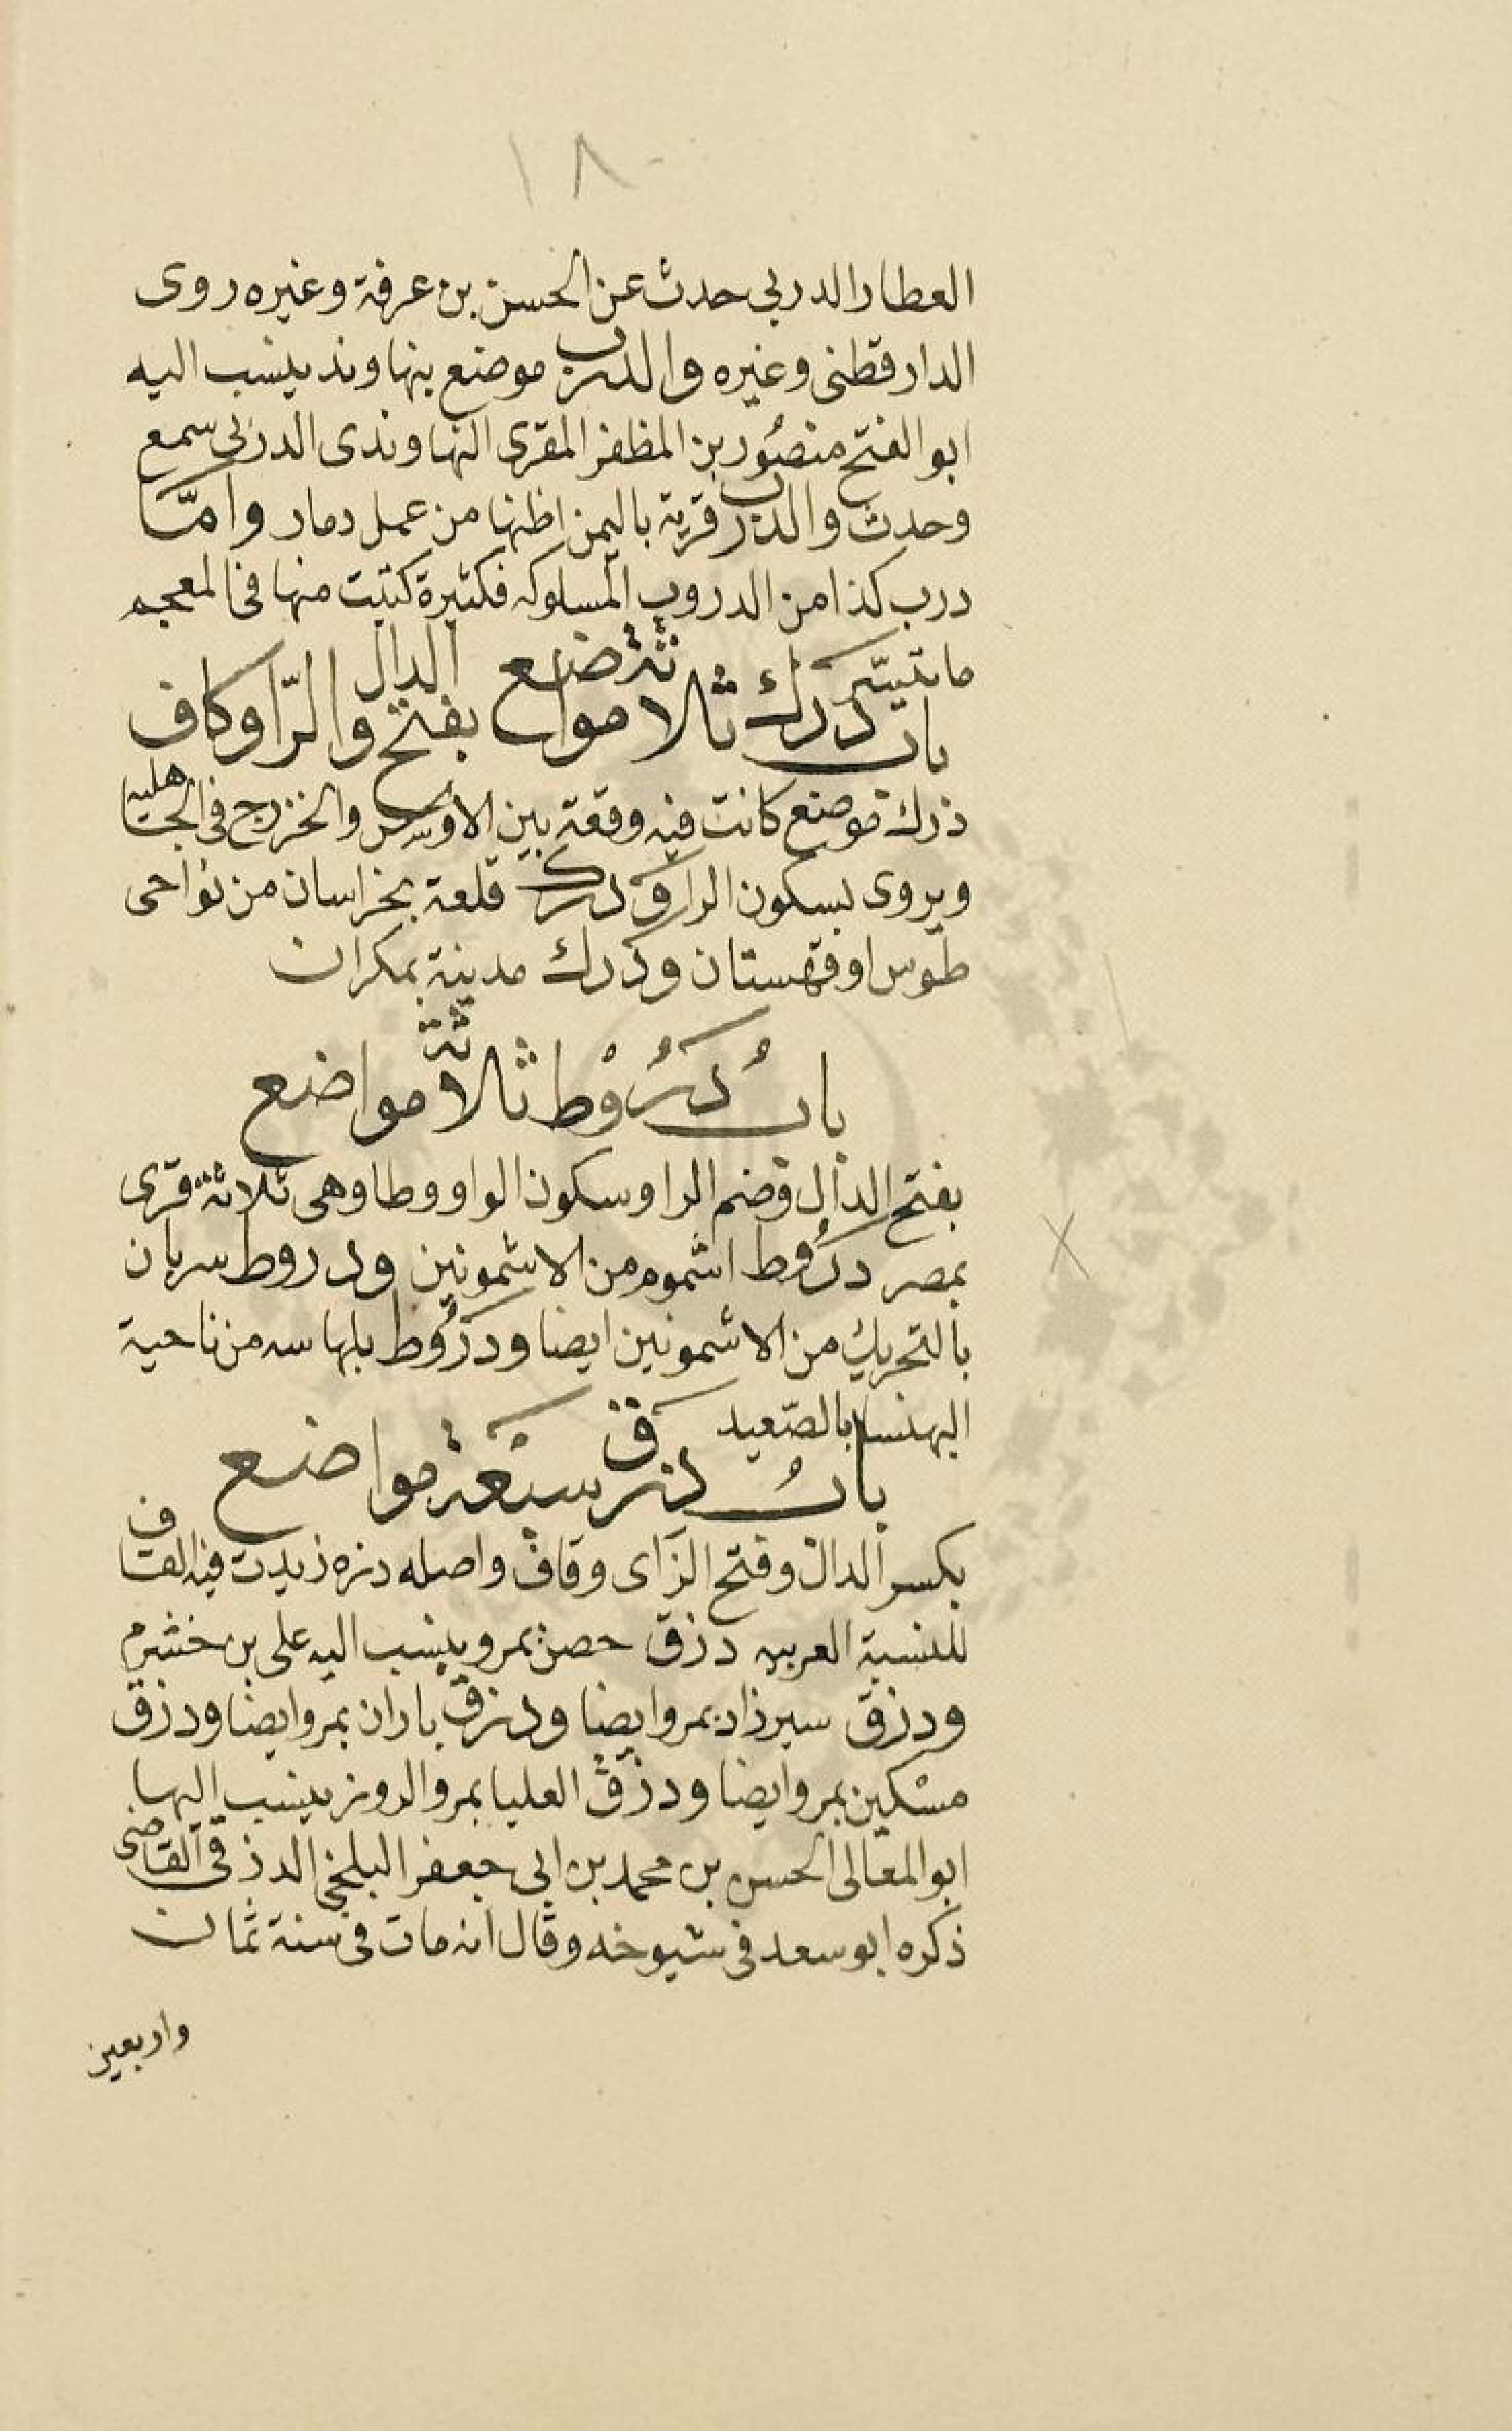 ١٨٠
العطار الدربي حدث عن الحسن بن عرفة وغيره روى
الدارقطنى وغيره والدرب موضع بنهاوند ينسب اليه
ابو الفتح منصُور بن المظفر المقرى النهاوندى الدربى سمع
وحدث والدرب قرية باليمن اظنها من عمل دمار وامّا
درب كذا من الدروب المسلوكه فكثيرة كتبت منها فى المعجم
ما تيسّر
باب دَرَك ثلاثة مواضع بفتح الدال والرّا وكاف
درك موضع كانت فيه وقعة بين الاوس والخزرج فى الجاهليه
ويروى بسكون الرا ودرك قلعة بخراسان من نواحى
طوس او قهستان ودرك مدينة بمكران
بابُ دَرُوْط ثلاثة مواضع
بفتح الدال وضم الرا وسكون الواو وطا وهى ثلاثة قرى
بمصر درُوط اشموم من الاشمونين ودروط سربان
بالتحريك من الاشمونين ايضا ودرُوط بلهاسه من ناحية
البهنسا بالصّعيد
بابُ دزق سبعَة مواضع
بكسر الدال وفتح الزاى وقاف واصله دزه زيدت فيه القاف
للنسبة العربيه دزق حصن بمرو ينسب اليه على بن خشرم
ودزق سيرزاد بمرو ايضا ودزق باران بمرو ايضا ودزق
مسْكين بمرو ايضا ودزق العليا بمرو الروز ينسب اليها
ابو المعالى الحسن بن محمد بن ابى جعفر البلخى الدزقى القاضى
ذكره ابو سعد فى شيوخه وقال انه مات فى سنة ثمان
واربعين